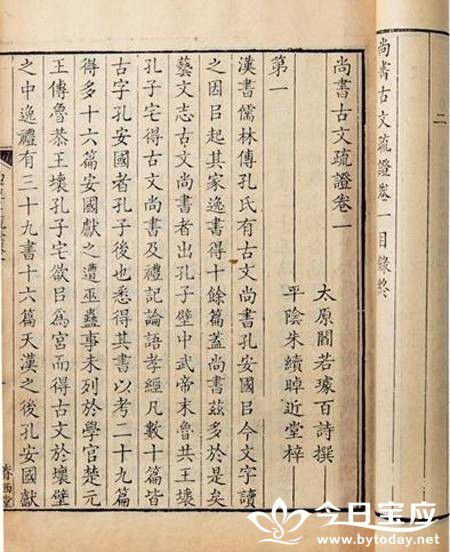 二
尚書古文疏證卷一目錄終
尚書古文疏證卷一
太原閻若璩百詩撰
平陰朱續晫近堂梓
第一
漢書儒林傳孔氏有古文尚書孔安國㠯今文字讀
之因㠯起其家逸書得十餘篇蓋尚書茲多於是矣
藝文志古文尚書者出孔子壁中武帝末魯共王壞
孔子宅得古文尚書及禮記論語孝經凡數十篇皆
古字孔安國者孔子後也悉得其書以考二十九篇
得多十六篇安國獻之遭巫蠱事未列於學官楚元
王傳魯恭王壞孔子宅欲㠯為宮而得古文於壞壁
之中逸禮有三十九書十六篇天漢之後孔安國獻
眷西堂
今日宝应
www.bytoday.net